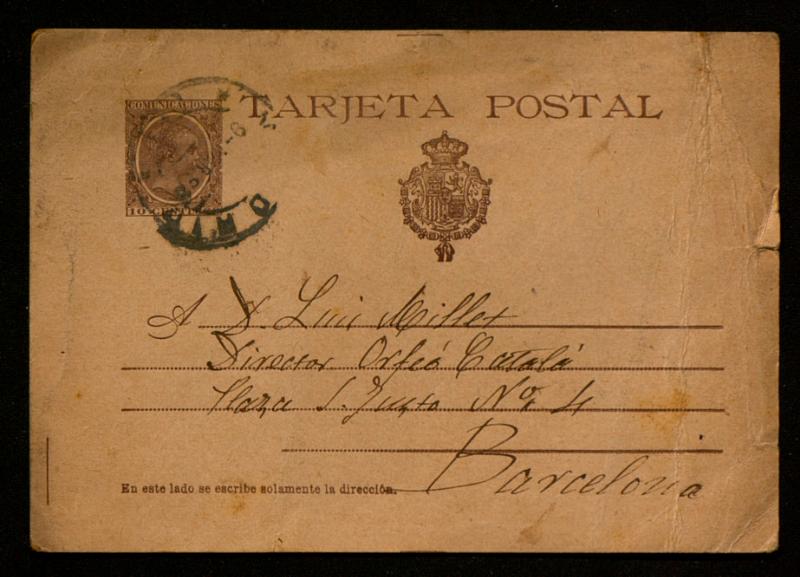 COMUNICACIONES
TARJETA POSTAL
A D. Luis Millet
Director Orfeó Catalá
Plaza S. Justo Nº 4
Barcelona
En este lado se escribe solamente la dirección.